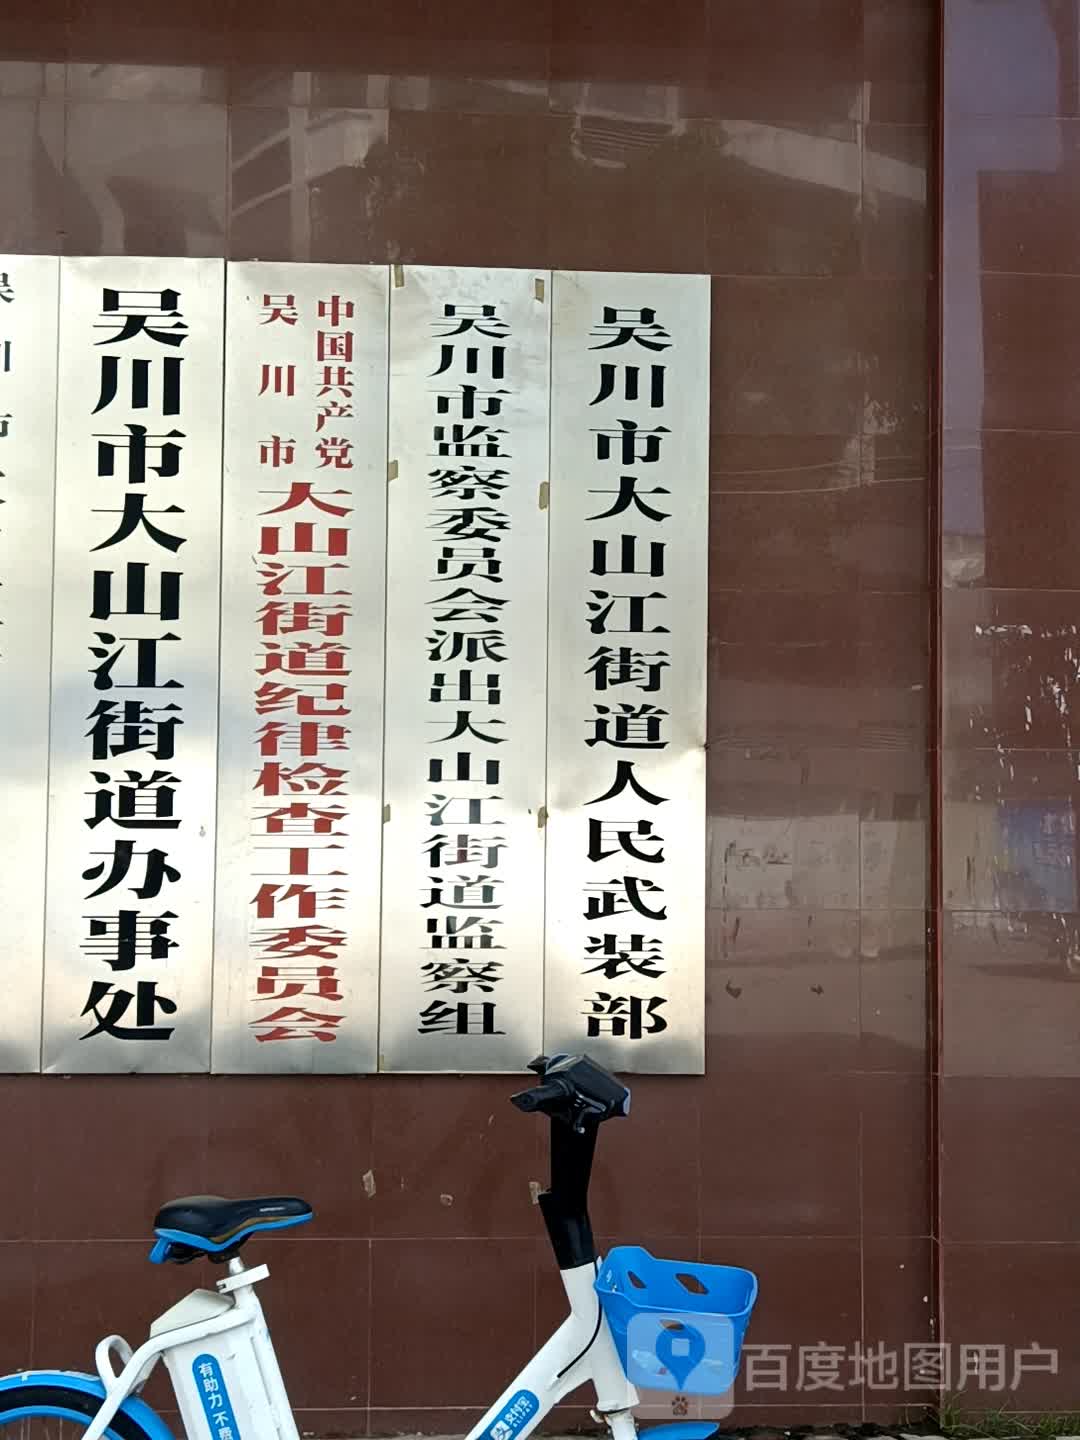 吴川市大山江街道办事处
中国共产党
吴川市
大山江街道纪律检查工作委员会
吴川市监察委员会派出大山江街道监察组
吴川市大山江街道人民武装部
有助力 不费
支付宝
ALIPAY
百度地图用户